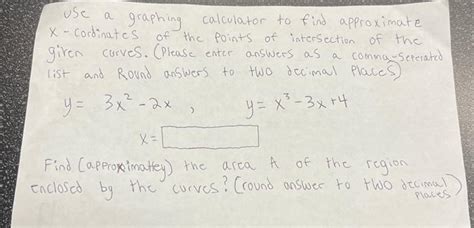 Use a graphing calculator to find approximate
x-cordinates of the points of intersection of the
given curves. (Please enter answers as a comma-seterated
list and Round answers to two decimal places)
y = 3x² - 2x , y = x³ - 3x + 4
x =
Find (approximatley) the area A of the region
enclosed by the curves? (round answer to two decimal
places)